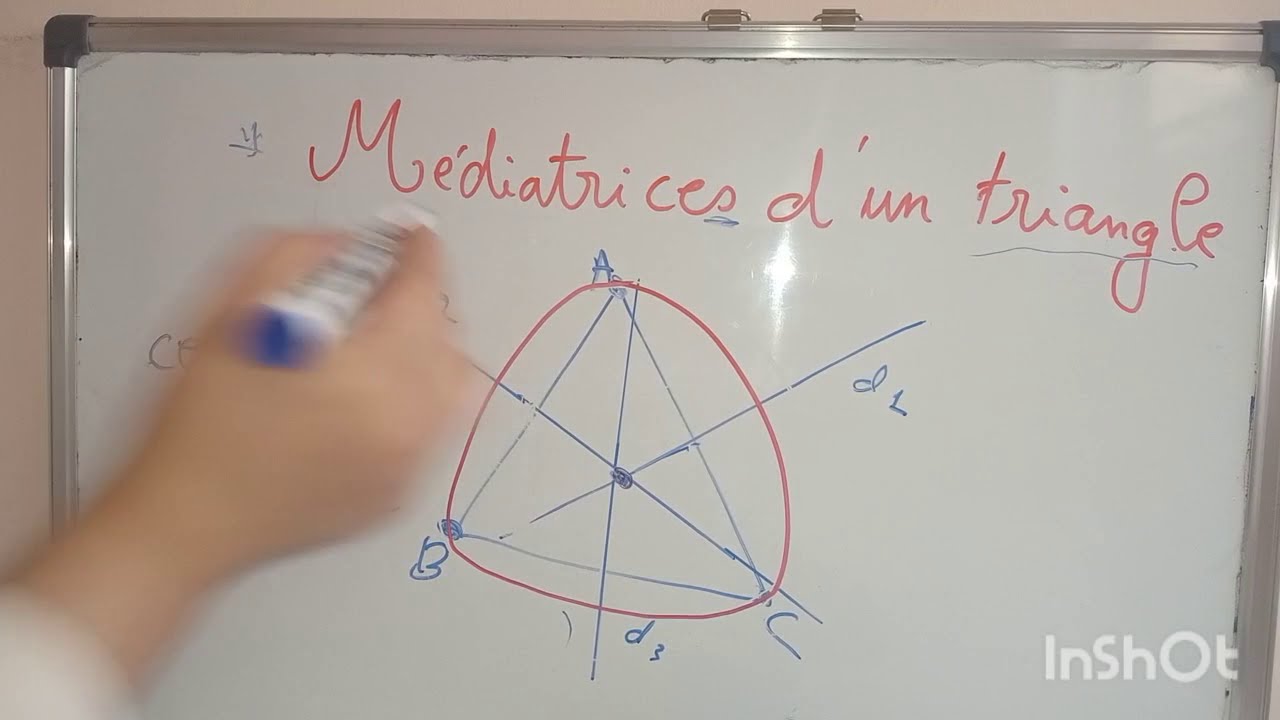 Médiatrices d'un triangle
A
d
B
C
d3
InShOt